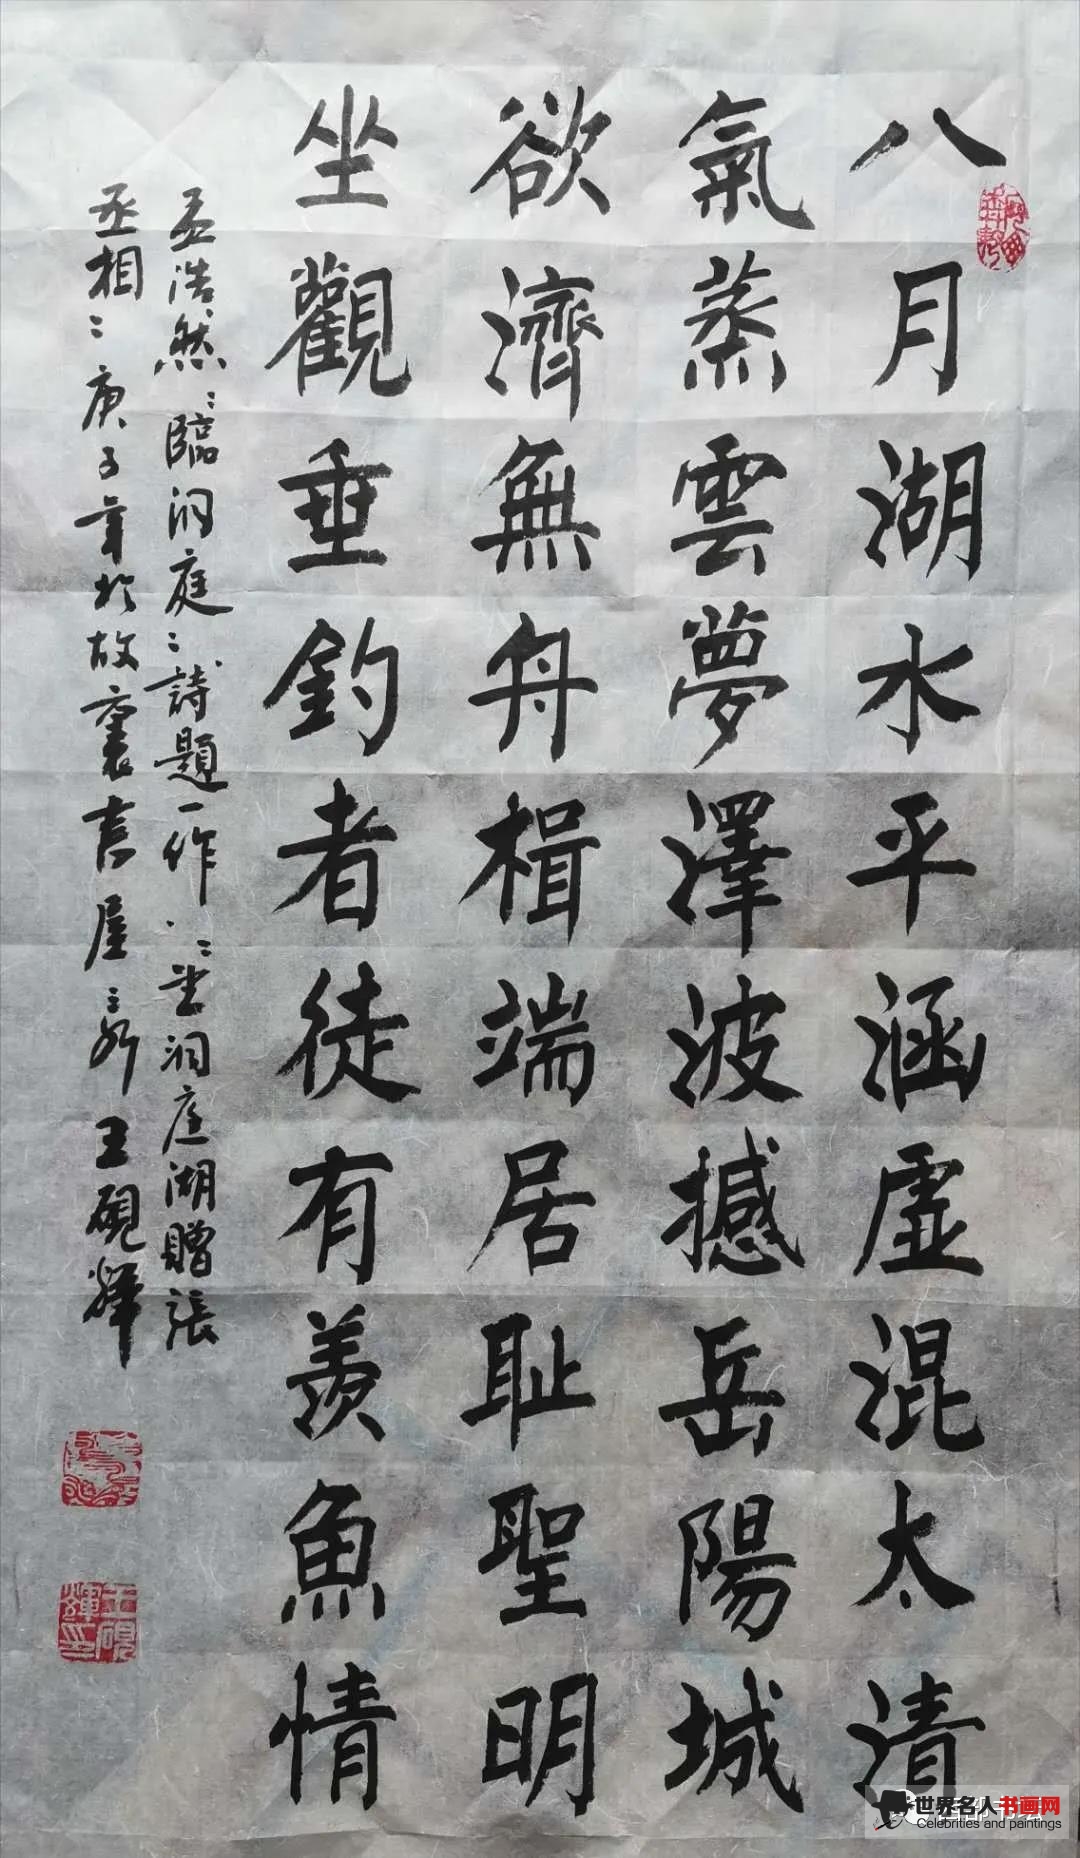 八月湖水平涵虚混太清
氣蒸雲夢澤波撼岳陽城
欲濟無舟楫端居耻聖明
坐觀垂釣者徒有羡魚情
孟浩然臨洞庭詩題一作望洞庭湖贈張
丞相庚子年於故裏書屋王硯輝
王硯輝印
世界名人书画网
Celebrities and paintings